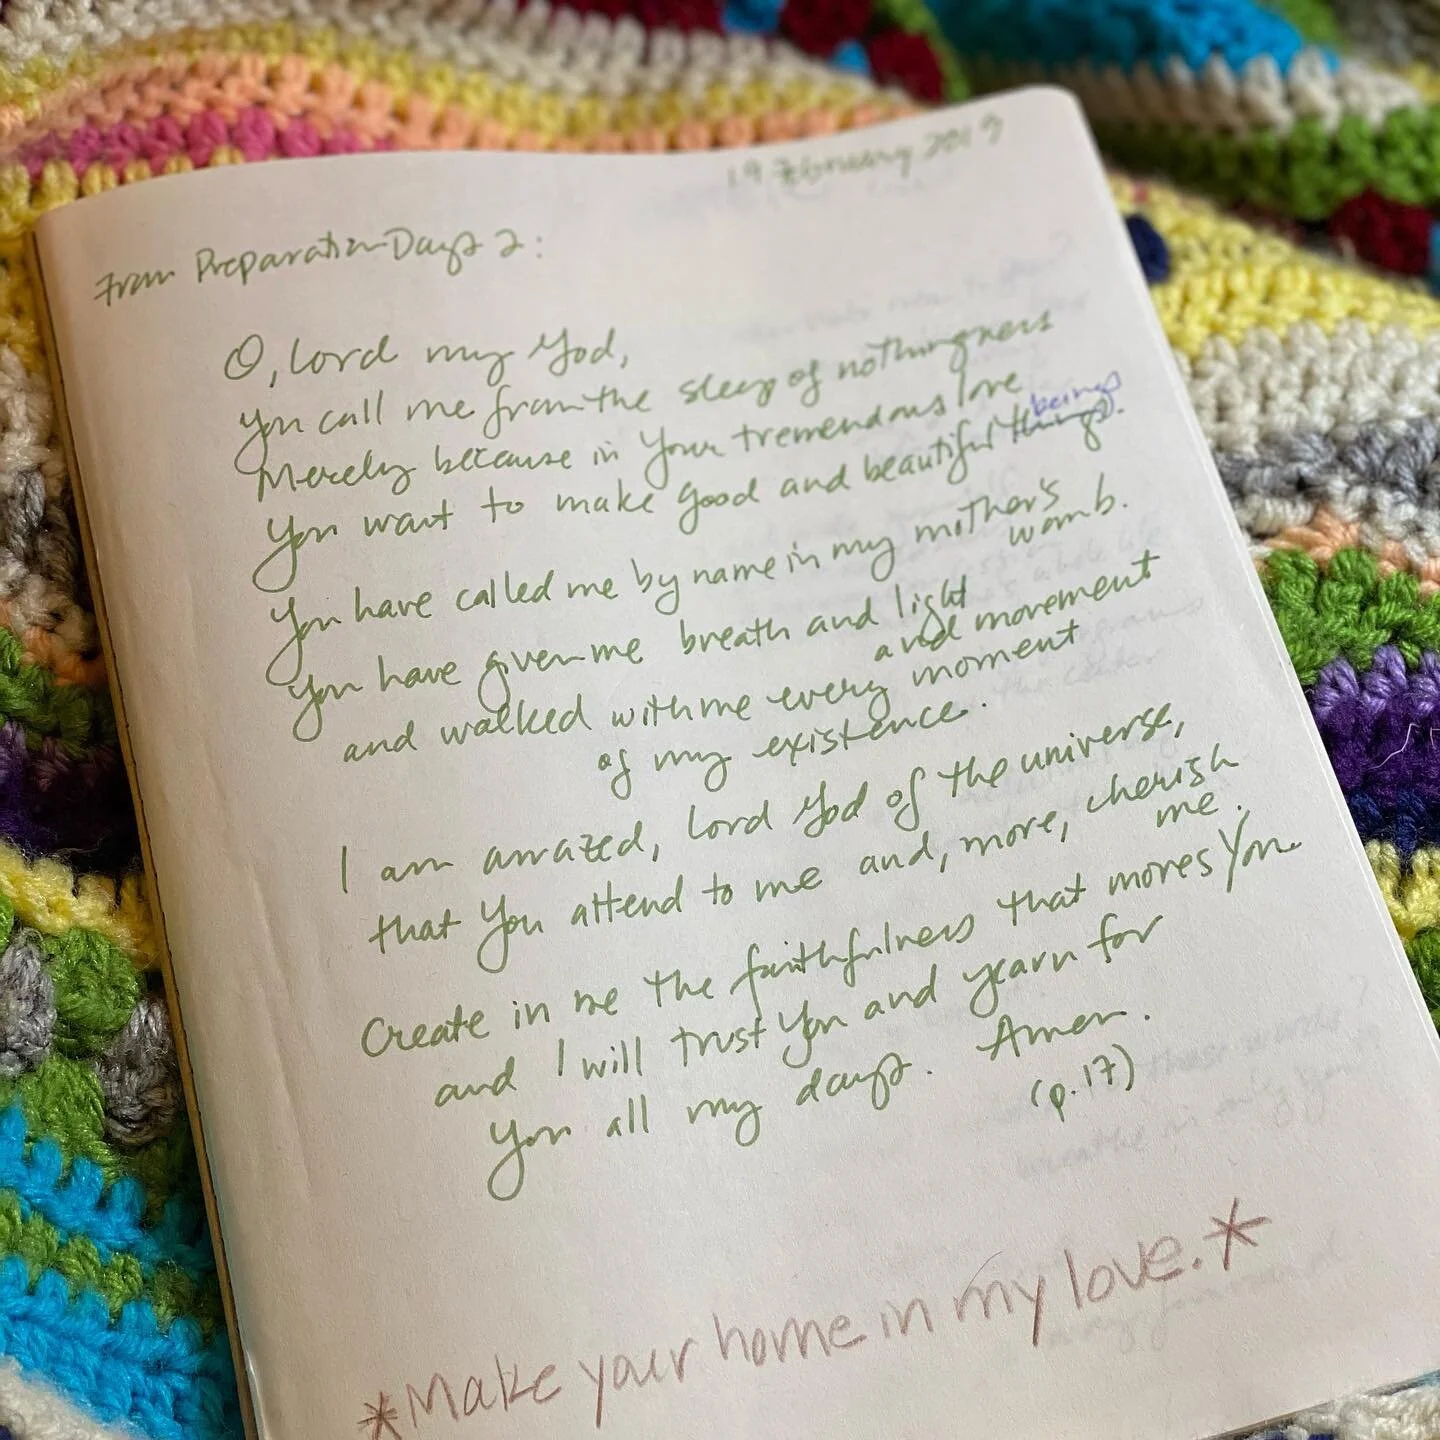 19 February 2019
From Preparation Days 2:
O, Lord my God,
You call me from the sleep of nothingness
Merely because in Your tremendous love
You want to make good and beautiful things beings.
You have called me by name in my mother's
womb.
You have given me breath and light
and movement
and walked with me every moment
of my existence.
I am amazed, Lord God of the universe,
that You attend to me and, more, cherish
me.
Create in me the faithfulness that moves You
and I will trust You and yearn for
You all my days. Amen.
(p.17)
*Make your home in my love.*